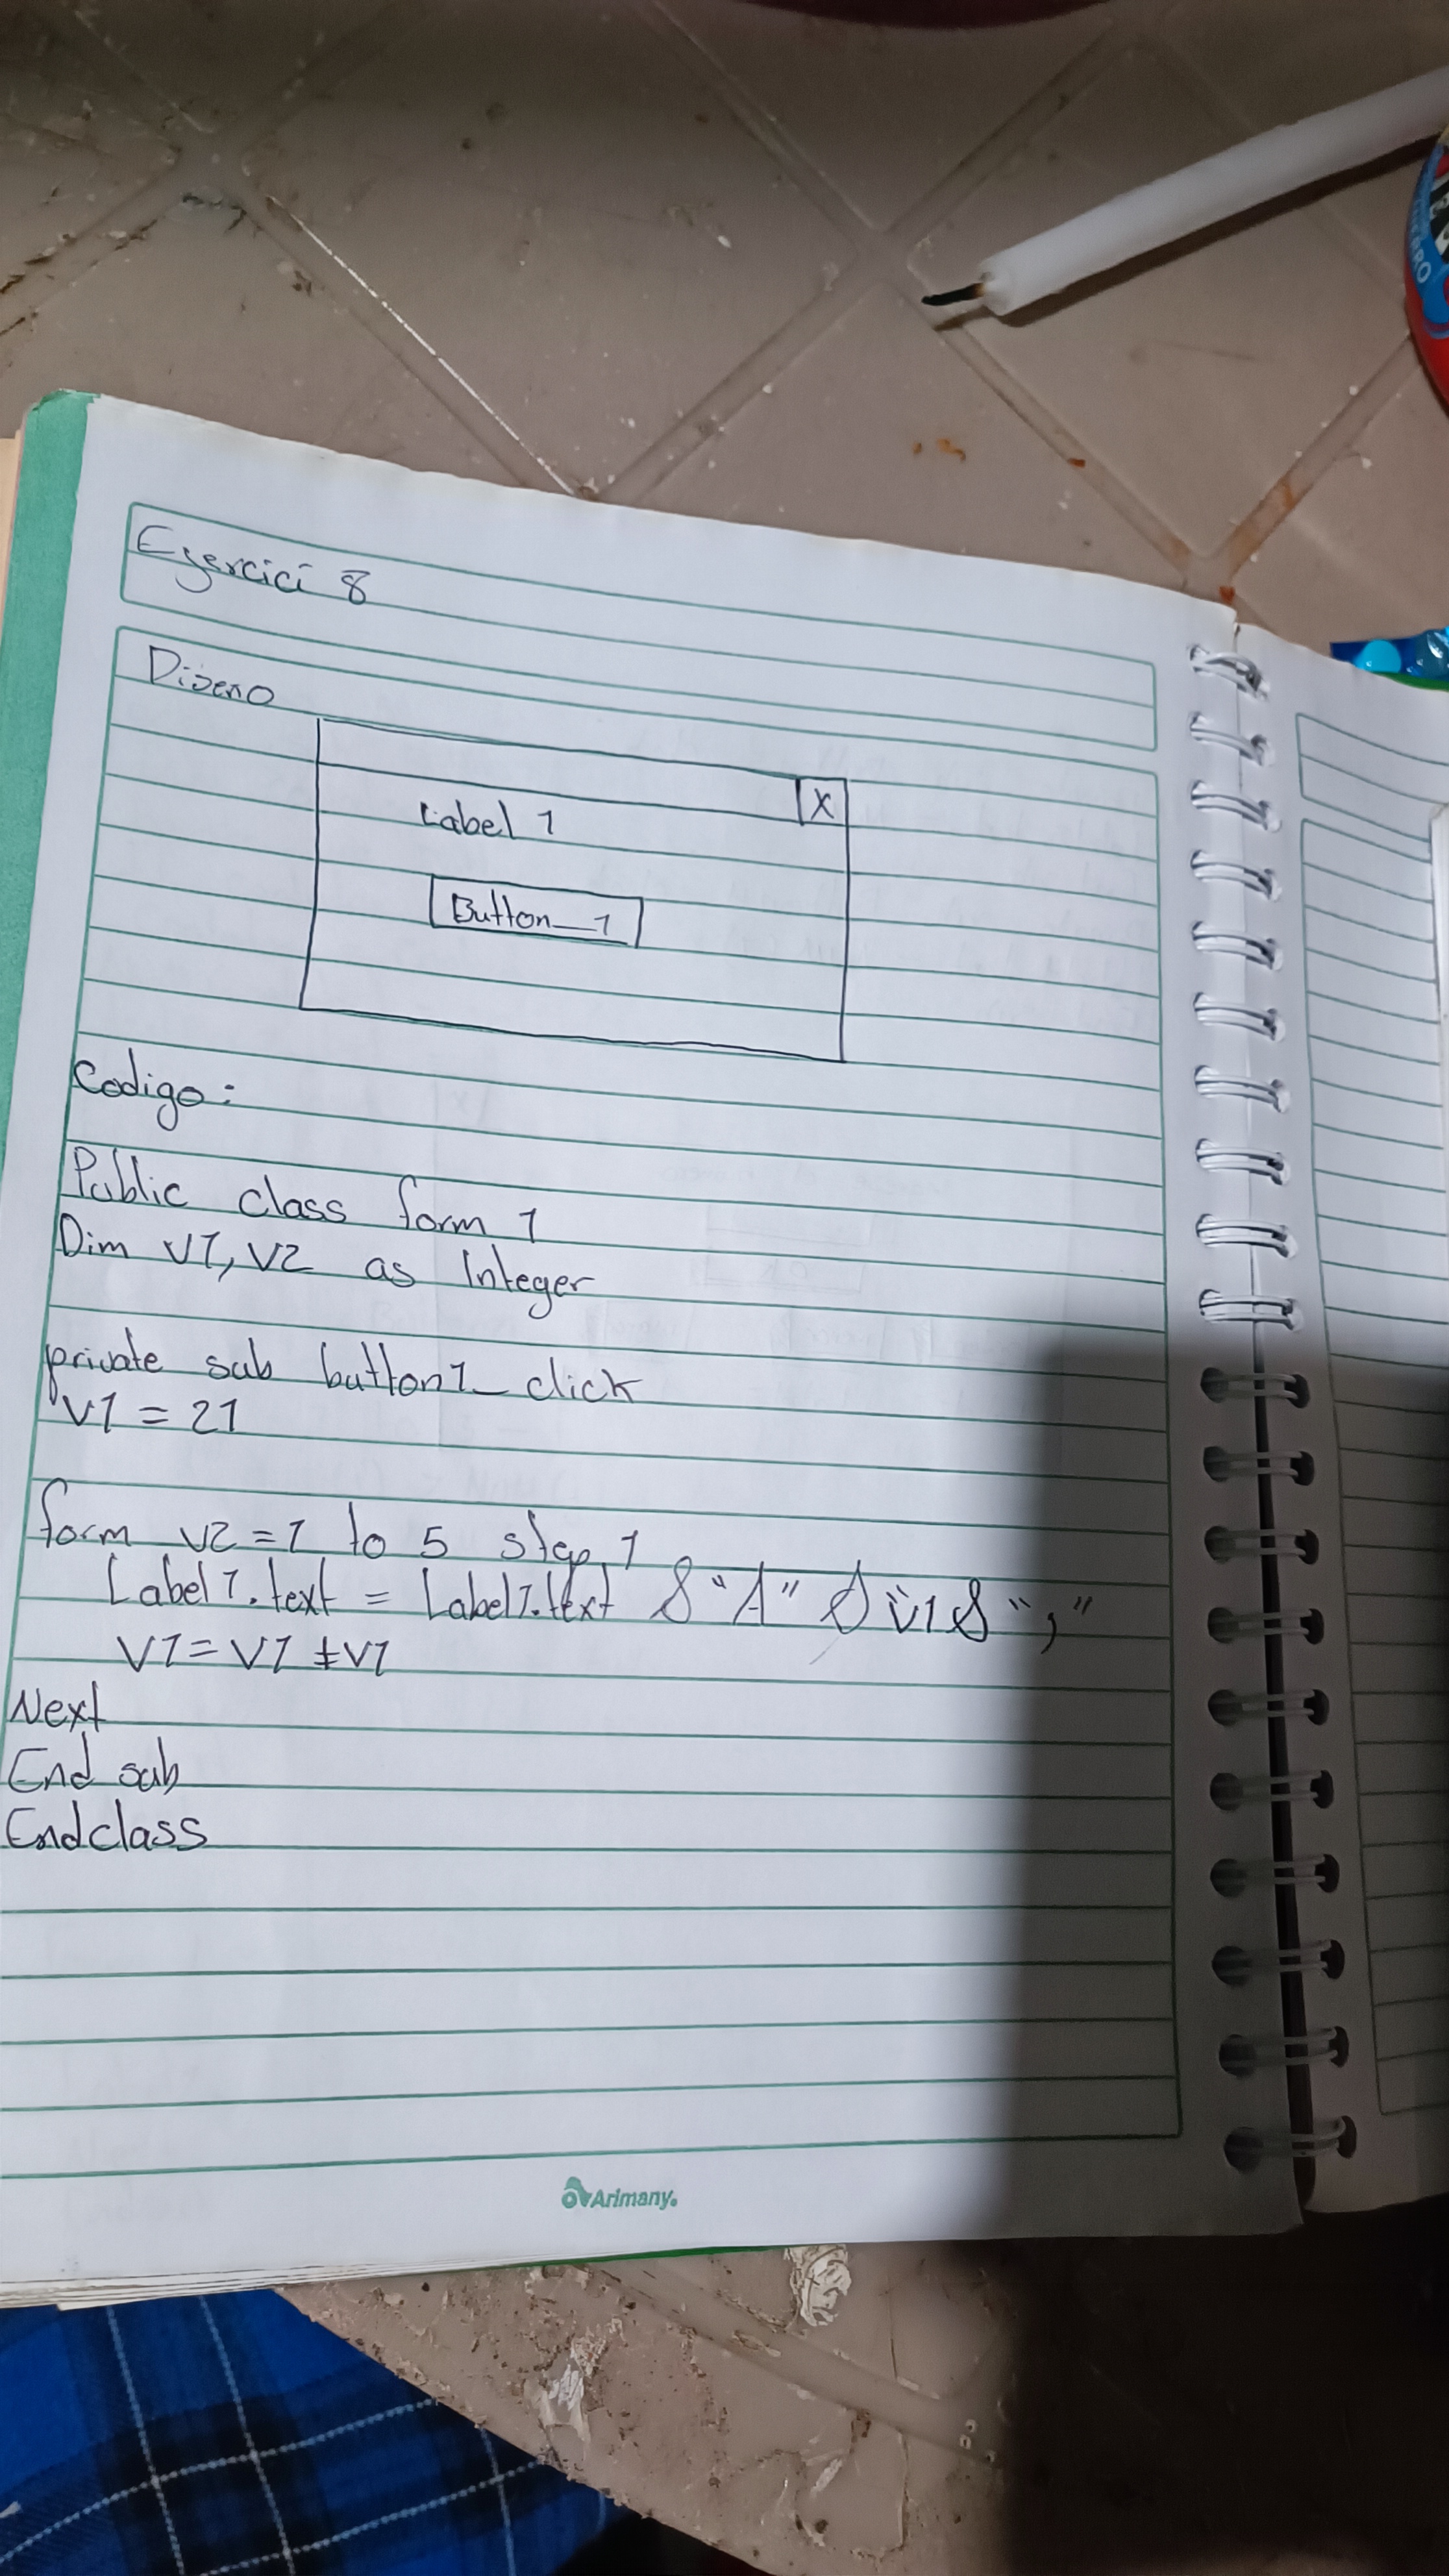 Ejercici 8
Diseno
X
Label 1
Button_1
Codigo:
Public class form 1
Dim V1, V2 as Integer
private sub button1_click
V1 = 21
form V2 = 1 to 5 step 1
Label1.text = Label1.text & "A" & V1 & ","
V1 = V1 + V1
Next
End sub
End class
Arimany.